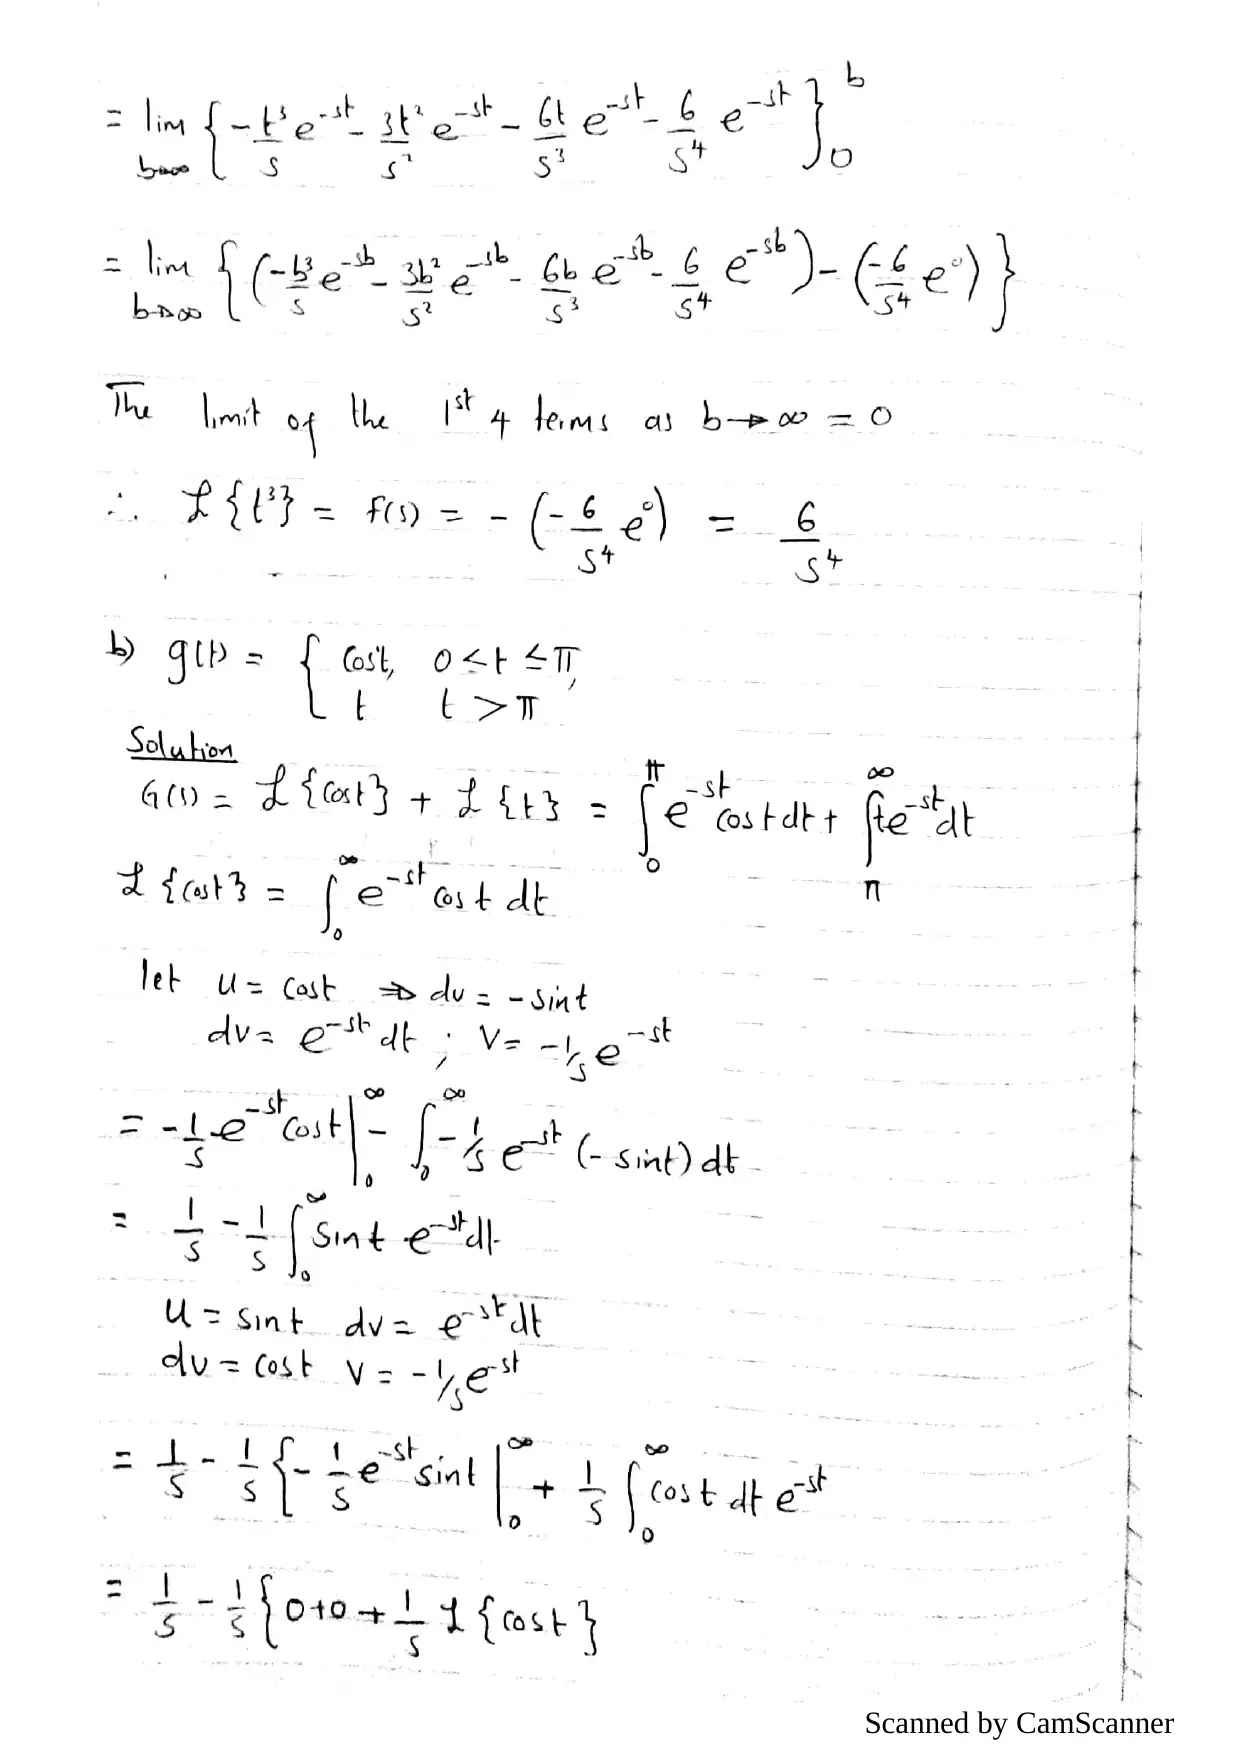 = lim b→∞ { -t³/s e^-st - 3t²/s² e^-st - 6t/s³ e^-st - 6/s⁴ e^-st }₀^b
= lim b→∞ { (-b³/s e^-sb - 3b²/s² e^-sb - 6b/s³ e^-sb - 6/s⁴ e^-sb) - (-6/s⁴ e⁰) }
The limit of the 1st 4 terms as b→∞ = 0
∴ ℒ{t³} = f(s) = - (-6/s⁴ e⁰) = 6/s⁴
b) g(t) = { cost, 0≤t≤π,
t t>π
Solution
G(s) = ℒ{cost} + ℒ{t} = ∫₀^π e^-st cost dt + ∫π^∞ te^-st dt
ℒ{cost} = ∫₀^∞ e^-st cost dt
let u = cost ⇒ du = -sint
dv = e^-st dt ; v = -1/s e^-st
= -1/s e^-st cost |₀^∞ - ∫₀^∞ -1/s e^-st (-sint) dt
= 1/s - 1/s ∫₀^∞ sint e^-st dt
u = sint dv = e^-st dt
du = cost v = -1/s e^-st
= 1/s - 1/s { -1/s e^-st sint |₀^∞ + 1/s ∫₀^∞ cost dt e^-st
= 1/s - 1/s { 0+0 + 1/s ℒ{cost}
Scanned by CamScanner